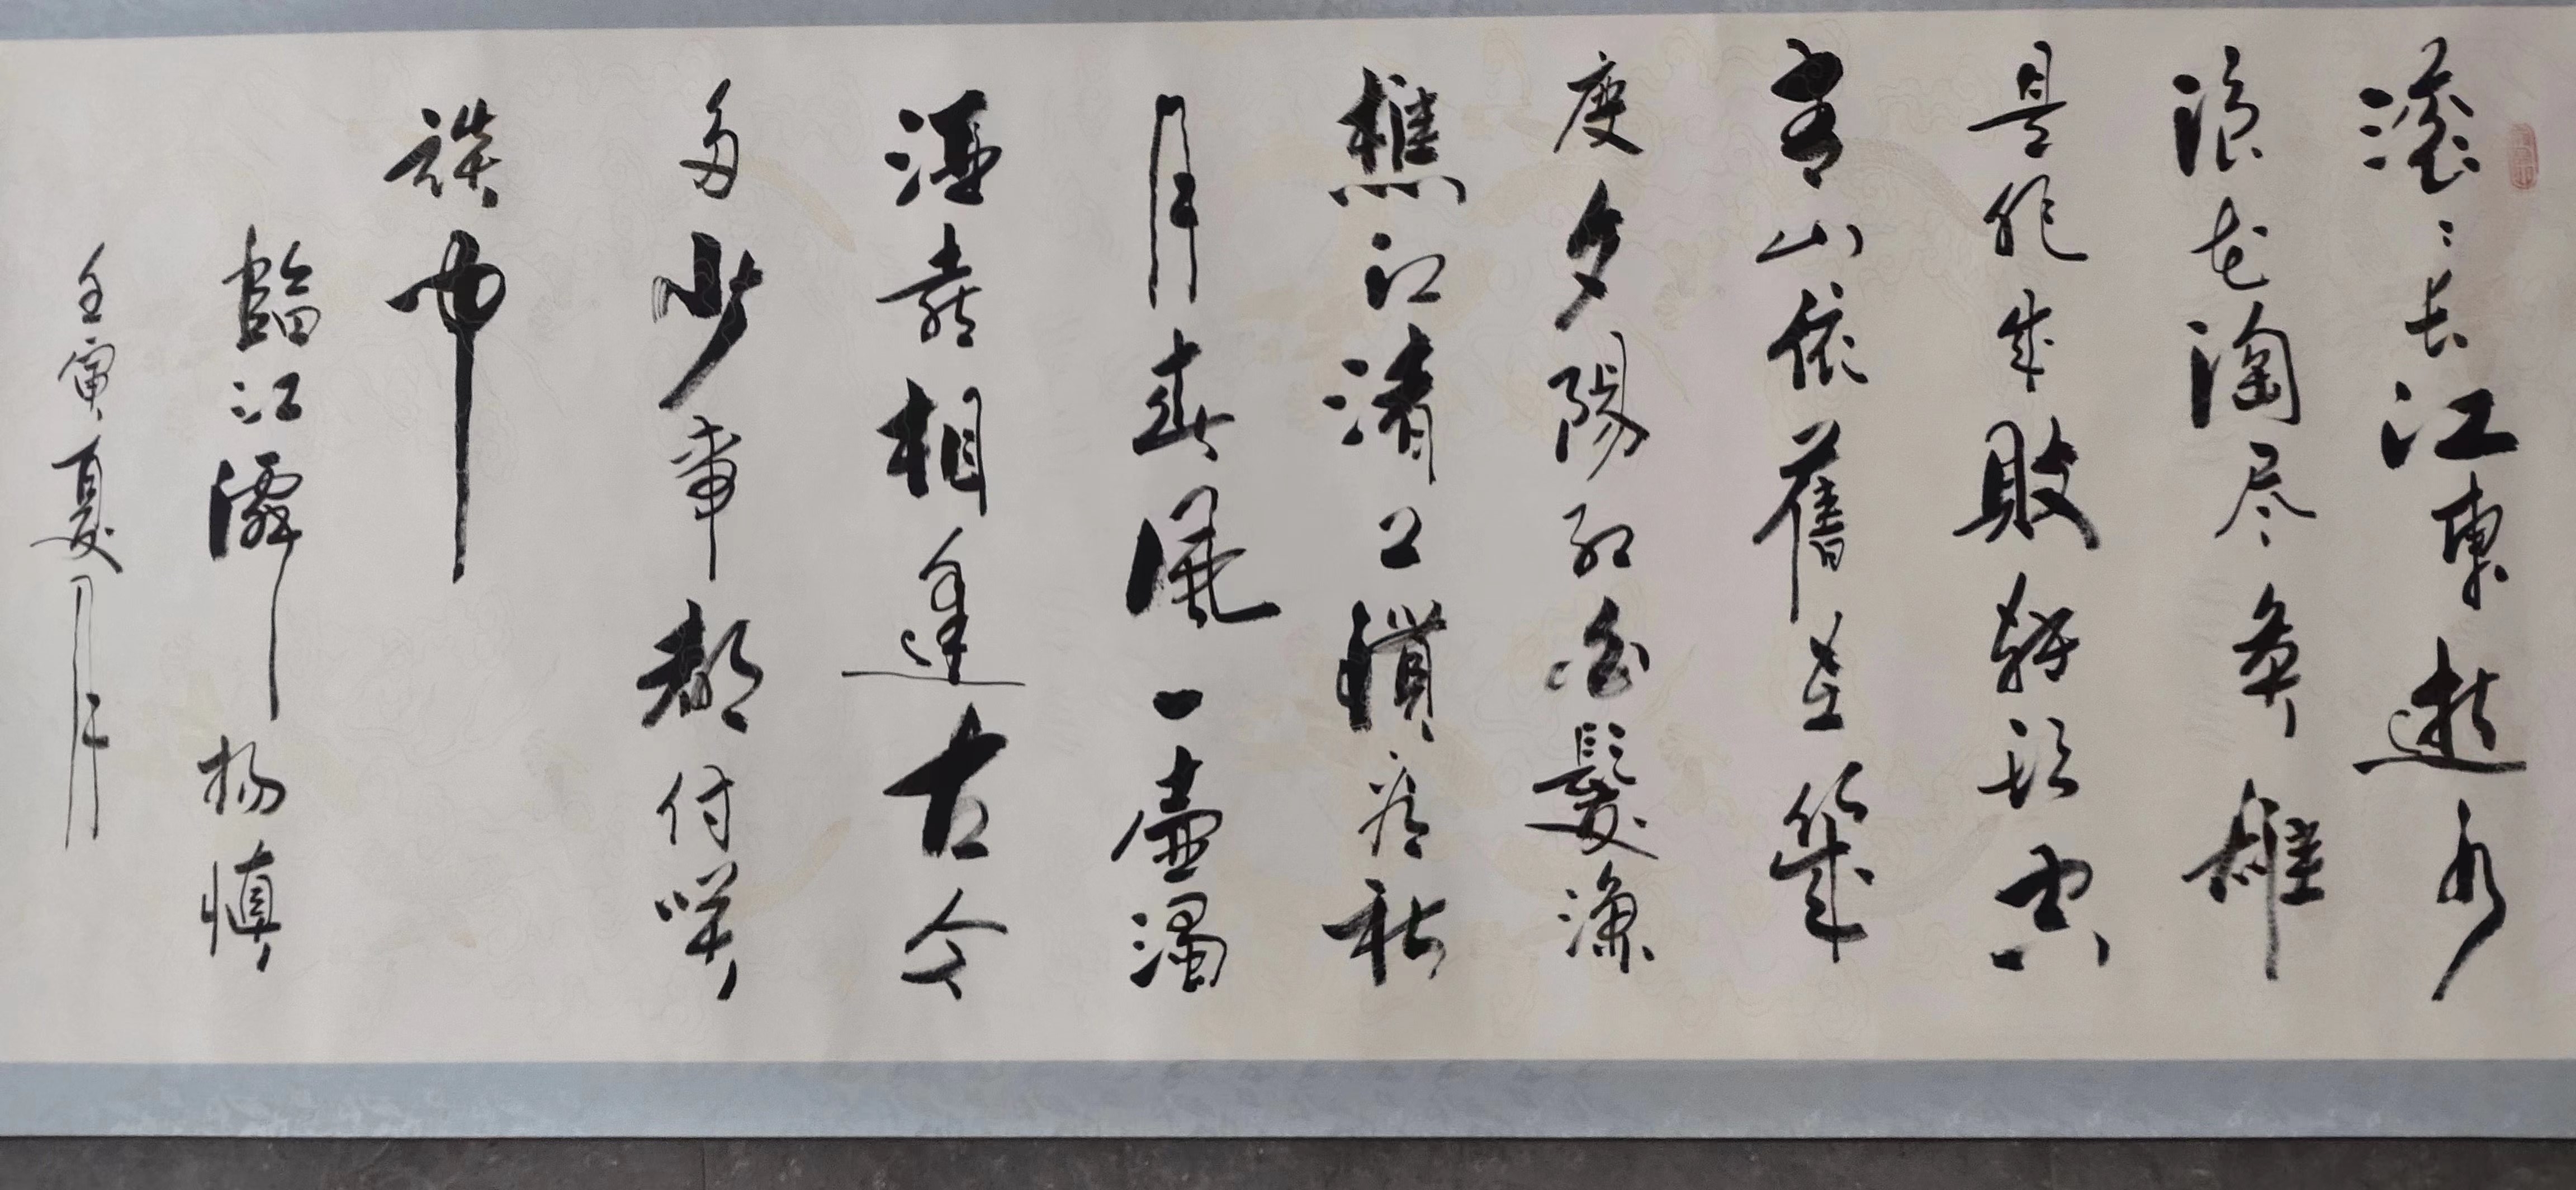 滚滚长江東逝水
浪花淘尽英雄
是非成敗转头空
青山依舊在幾
度夕陽红白髮漁
樵江渚上慣看秋
月春風一壶濁
酒喜相逢古今
多少事都付笑
談中
臨江 杨慎
壬寅夏月